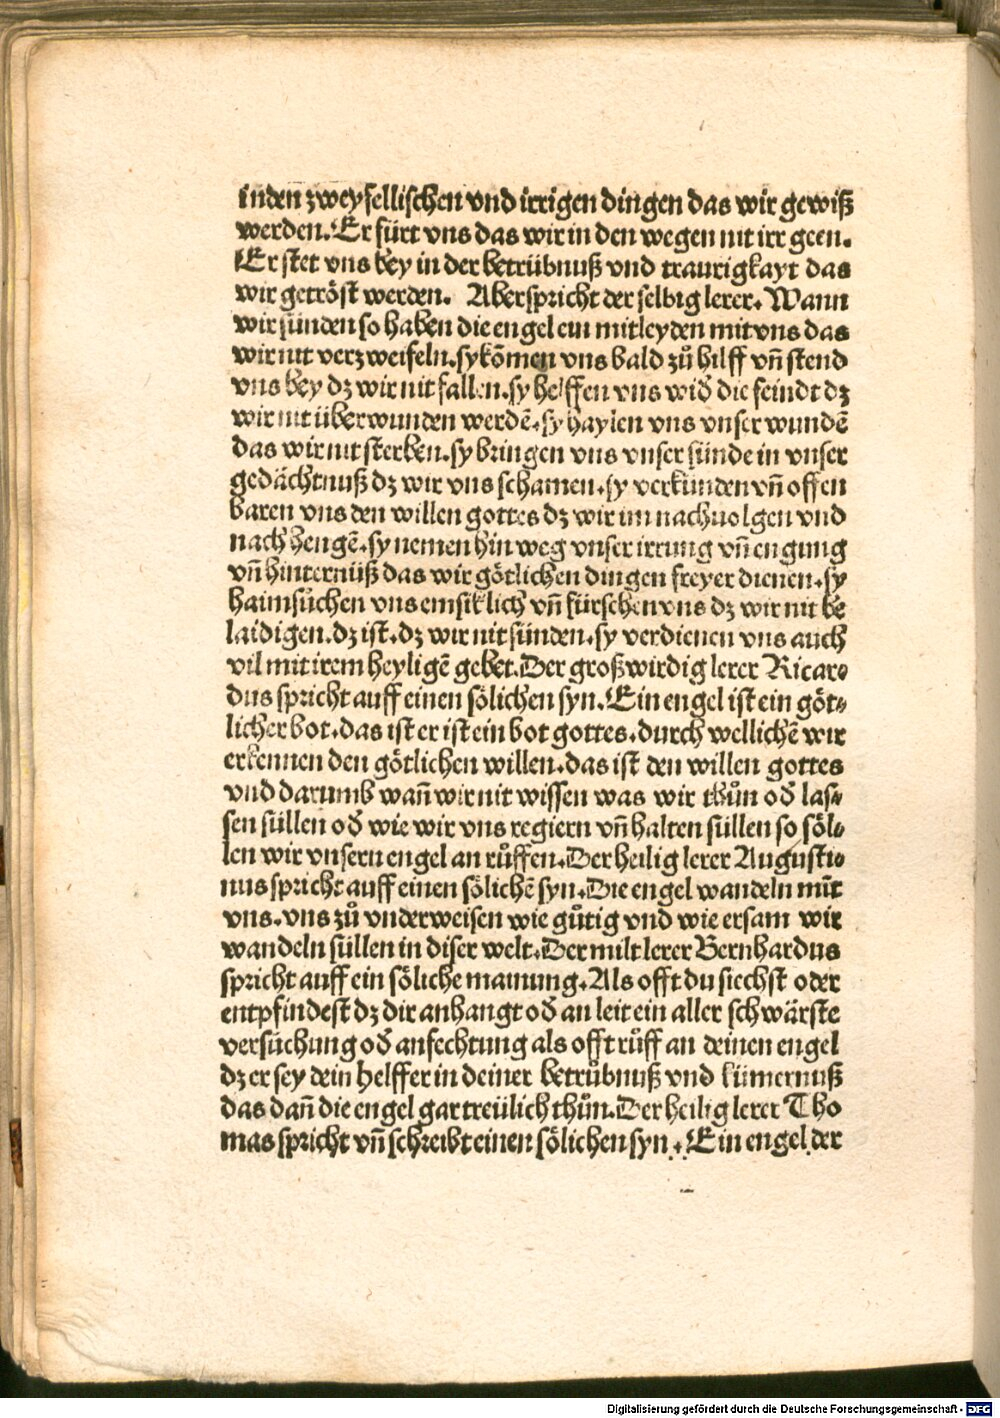 in den zweyfellischen vnd irrigen dingen das wir gewiß
werden. Er fürt vns das wir in den wegen nit irr geen.
Er stet vns bey in der betrübnuß vnd traurigkayt das
wir getröst werden. Aber spricht der selbig lerer. Wann
wir sünden so haben die engel ein mitleyden mit vns das
wir nit verzweifeln. sy kōmen vns bald zů hilff vñ stend
vns bey dz wir nit fallen. sy helffen vns wid̄ die feindt dz
wir nit überwunden werdē. sy haylen vns vnser wundē
das wir nit sterben. sy bringen vns vnser sünde in vnser
gedächtnuß dz wir vns schamen. sy verkünden vñ offen
baren vns den willen gottes dz wir im nachuolgen vnd
nach hengē. sy nemen hin weg vnser irrung vñ engung
vñ hinternüß das wir götlichen dingen freyer dienen. sy
haimsůchen vns emsiklich vñ fürsehen vns dz wir nit be
laidigen. dz ist. dz wir nit sünden. sy verdienen vns auch
vil mit irem heyligē gebet. Der großwirdig lerer Ricar⸗
dus spricht auff einen sölichen syn. Ein engel ist ein göt⸗
licher bot. das ist er ist ein bot gottes. durch wellichē wir
erkennen den götlichen willen. das ist den willen gottes
vnd darumb wañ wir nit wissen was wir thůn od̄ las⸗
sen süllen od̄ wie wir vns regiern vñ halten süllen so söl⸗
len wir vnsern engel an růffen. Der heilig lerer Augusti⸗
nus spricht auff einen sölichē syn. Die engel wandeln mit
vns. vns zů vnderweisen wie gůtig vnd wie ersam wir
wandeln süllen in diser welt. Der milt lerer Bernhardus
spricht auff ein söliche mainung. Als offt du siechst oder
entpfindest dz dir anhangt od̄ an leit ein aller schwärste
versůchung od̄ anfechtung als offt růff an deinen engel
dz er sey dein helffer in deiner betrůbnuß vnd kümernuß
das dañ die engel gar treülich thůn. Der heilig lerer Tho
mas spricht vñ schreibt einen sölichen syn. Ein engel der
Digitalisierung gefördert durch die Deutsche Forschungsgemeinschaft - DFG